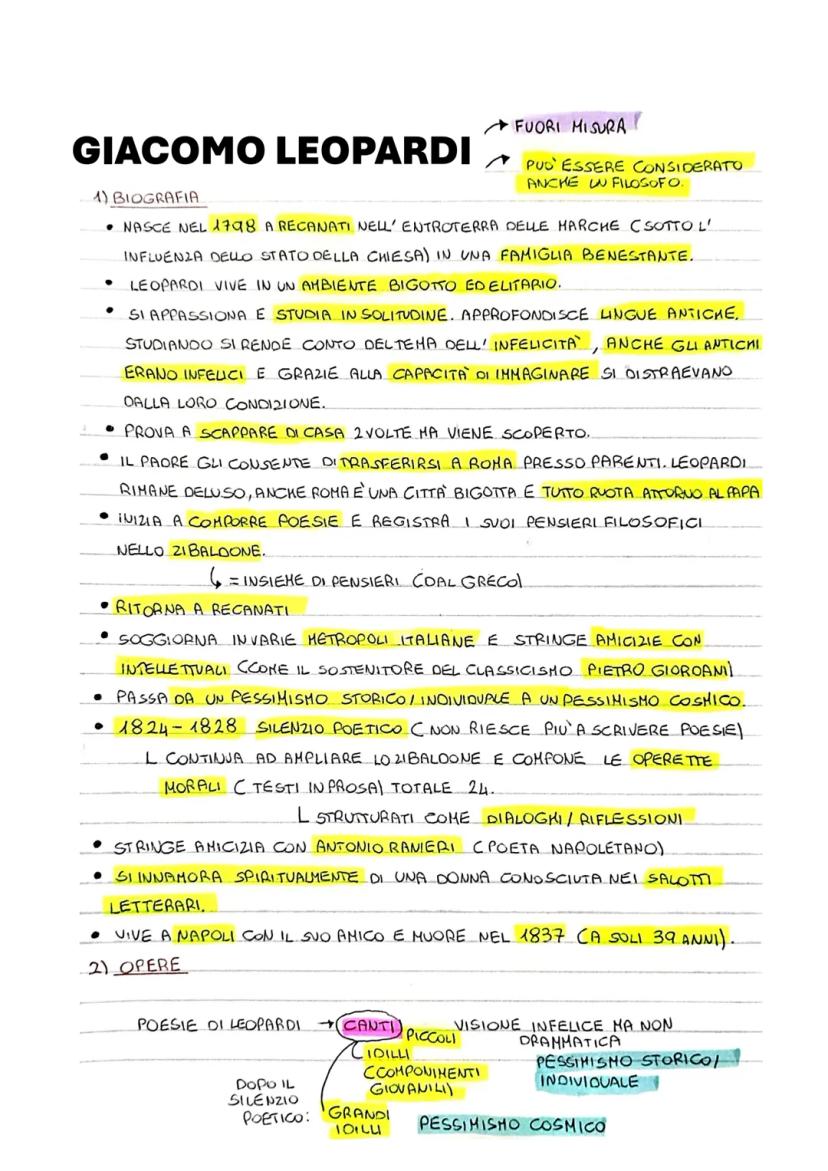 GIACOMO LEOPARDI
→ FUORI MISURA
→ PUO' ESSERE CONSIDERATO
ANCHE UN FILOSOFO.
1) BIOGRAFIA
• NASCE NEL 1798 A RECANATI NELL' ENTROTERRA DELLE MARCHE (SOTTO L'
INFLUENZA DELLO STATO DELLA CHIESA) IN UNA FAMIGLIA BENESTANTE.
• LEOPARDI VIVE IN UN AMBIENTE BIGOTTO ED ELITARIO.
• SI APPASSIONA E STUDIA IN SOLITUDINE. APPROFONDISCE LINGUE ANTICHE.
STUDIANDO SI RENDE CONTO DEL TEMA DELL' INFELICITA', ANCHE GLI ANTICHI
ERANO INFELICI E GRAZIE ALLA CAPACITA' DI IMMAGINARE SI DISTRAEVANO
DALLA LORO CONDIZIONE.
• PROVA A SCAPPARE DI CASA 2 VOLTE MA VIENE SCOPERTO.
• IL PADRE GLI CONSENTE DI TRASFERIRSI A ROMA PRESSO PARENTI. LEOPARDI
RIMANE DELUSO, ANCHE ROMA È UNA CITTA' BIGOTTA E TUTTO RUOTA ATTORNO AL PAPA
• INIZIA A COMPORRE POESIE E REGISTRA I SUOI PENSIERI FILOSOFICI
NELLO ZIBALDONE.
↳ = INSIEME DI PENSIERI (DAL GRECO)
• RITORNA A RECANATI
• SOGGIORNA IN VARIE METROPOLI ITALIANE E STRINGE AMICIZIE CON
INTELLETTUALI (COME IL SOSTENITORE DEL CLASSICISMO PIETRO GIORDANI)
• PASSA DA UN PESSIMISMO STORICO/INDIVIDUALE A UN PESSIMISMO COSMICO.
• 1824-1828 SILENZIO POETICO (NON RIESCE PIU' A SCRIVERE POESIE)
L CONTINUA AD AMPLIARE LO ZIBALDONE E COMPONE LE OPERETTE
MORALI (TESTI IN PROSA) TOTALE 24.
L STRUTTURATI COME DIALOGHI/RIFLESSIONI
• STRINGE AMICIZIA CON ANTONIO RANIERI (POETA NAPOLETANO)
• SI INNAMORA SPIRITUALMENTE DI UNA DONNA CONOSCIUTA NEI SALOTTI
LETTERARI.
• VIVE A NAPOLI CON IL SUO AMICO E MUORE NEL 1837 (A SOLI 39 ANNI).
2) OPERE
POESIE DI LEOPARDI → CANTI
PICCOLI
IDILLI
(COMPONIMENTI
GIOVANILI)
VISIONE INFELICE MA NON
DRAMMATICA
PESSIMISMO STORICO/
INDIVIDUALE
DOPO IL
SILENZIO
POETICO:
GRANDI
IDILLI
PESSIMISMO COSMICO